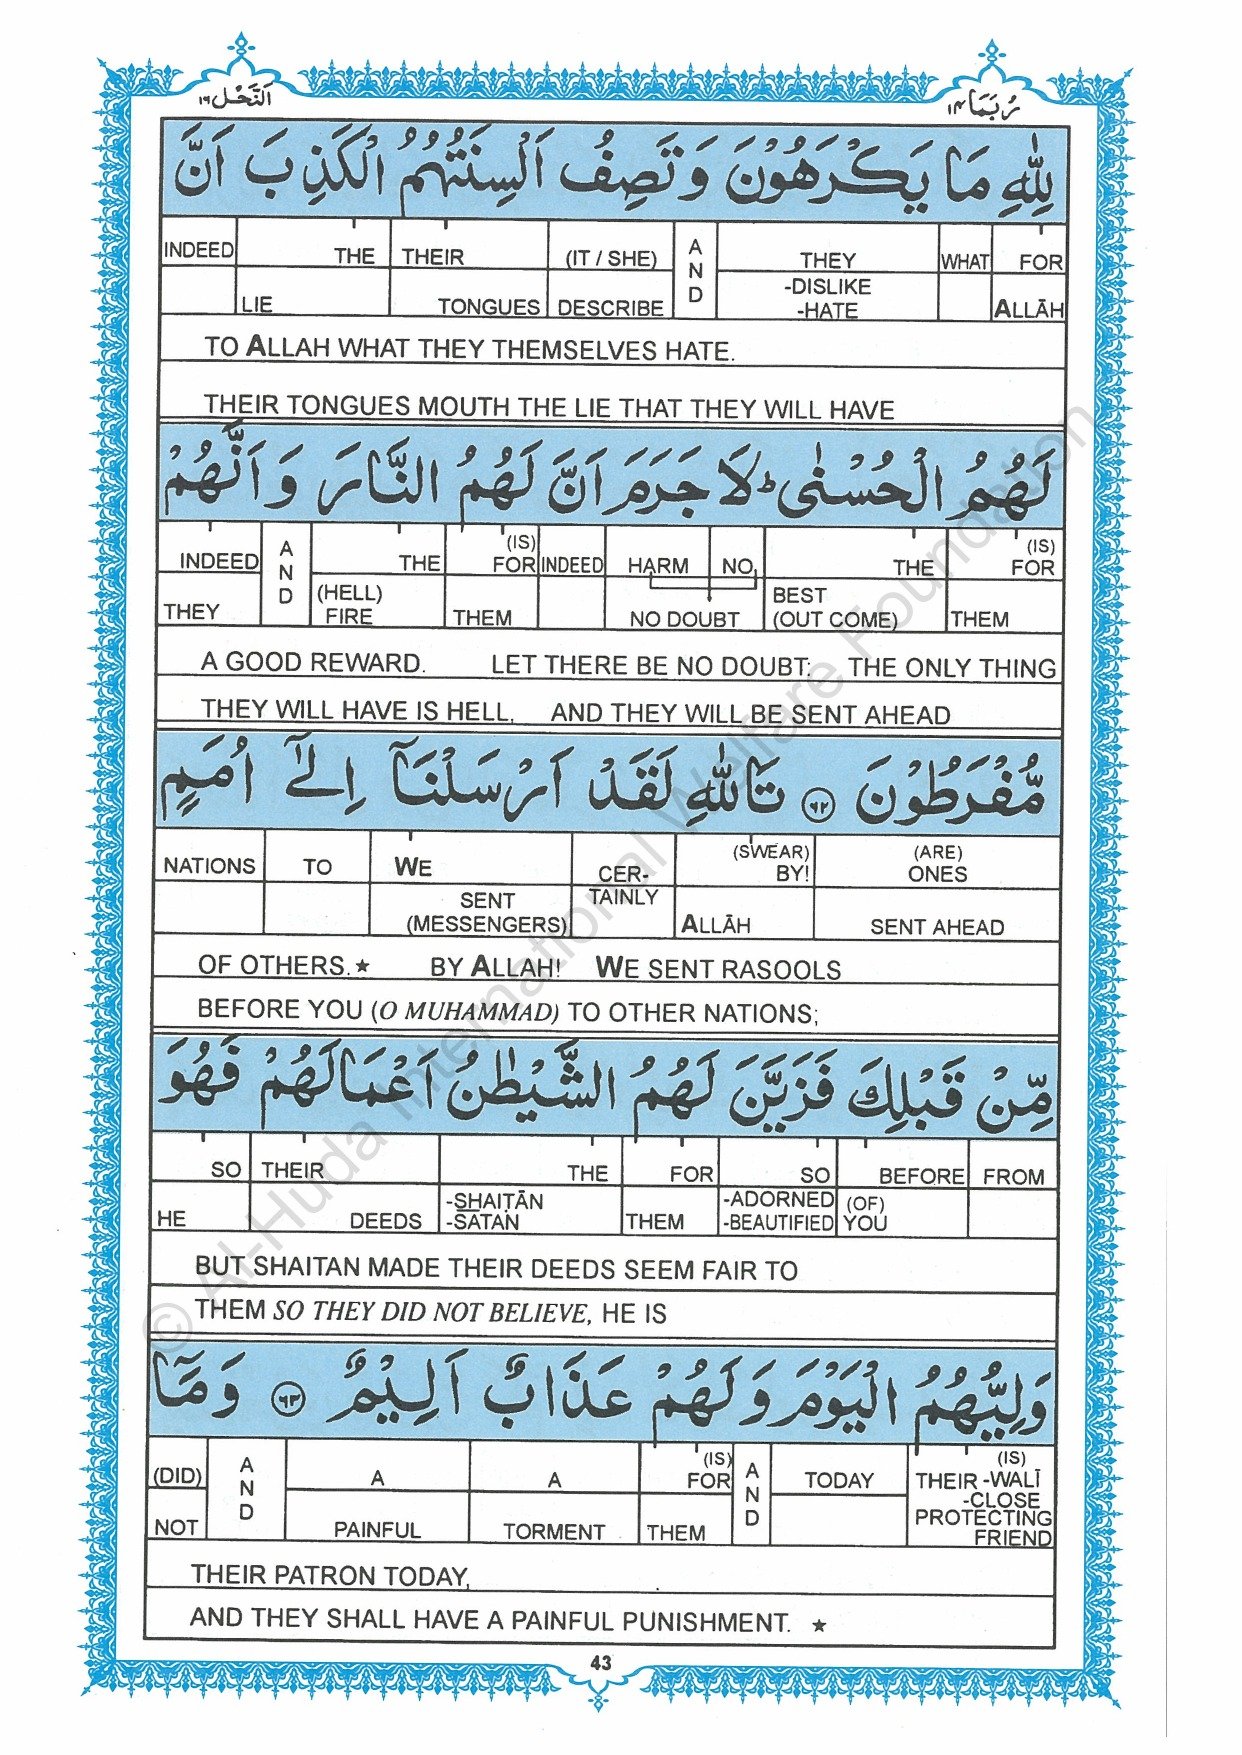 النَّحْل ١٦
رُبَمَا ١٤
لِلّٰهِ مَا يَكْرَهُوْنَ وَتَصِفُ اَلْسِنَتُهُمُ الْكَذِبَ اَنَّ
INDEED THE THEIR (IT / SHE) AND THEY WHAT FOR
LIE TONGUES DESCRIBE -DISLIKE -HATE ALLĀH
TO ALLAH WHAT THEY THEMSELVES HATE.
THEIR TONGUES MOUTH THE LIE THAT THEY WILL HAVE
لَهُمُ الْحُسْنٰى ؕ لَا جَرَمَ اَنَّ لَهُمُ النَّارَ وَاَنَّهُمْ
INDEED AND THE (IS) FOR INDEED HARM NO THE (IS) FOR
THEY (HELL) FIRE THEM NO DOUBT BEST (OUT COME) THEM
A GOOD REWARD. LET THERE BE NO DOUBT: THE ONLY THING
THEY WILL HAVE IS HELL, AND THEY WILL BE SENT AHEAD
مُّفْرَطُوْنَ ٦٢ تَاللّٰهِ لَقَدْ اَرْسَلْنَآ اِلٰٓى اُمَمٍ
NATIONS TO WE CER-TAINLY (SWEAR) BY! (ARE) ONES
SENT (MESSENGERS) ALLĀH SENT AHEAD
OF OTHERS.★ BY ALLAH! WE SENT RASOOLS
BEFORE YOU (O MUHAMMAD) TO OTHER NATIONS;
مِّنْ قَبْلِكَ فَزَيَّنَ لَهُمُ الشَّيْطٰنُ اَعْمَالَهُمْ فَهُوَ
SO THEIR THE FOR SO BEFORE FROM
HE DEEDS -SHAIṬĀN -SATAN THEM -ADORNED -BEAUTIFIED (OF) YOU
BUT SHAITAN MADE THEIR DEEDS SEEM FAIR TO
THEM SO THEY DID NOT BELIEVE, HE IS
وَلِيُّهُمُ الْيَوْمَ وَلَهُمْ عَذَابٌ اَلِيْمٌ ٦٣ وَمَآ
(DID) AND A A (IS) FOR AND TODAY (IS) THEIR -WALĪ
NOT PAINFUL TORMENT THEM -CLOSE PROTECTING FRIEND
THEIR PATRON TODAY,
AND THEY SHALL HAVE A PAINFUL PUNISHMENT. ★
43
© Al-Huda International Welfare Foundation